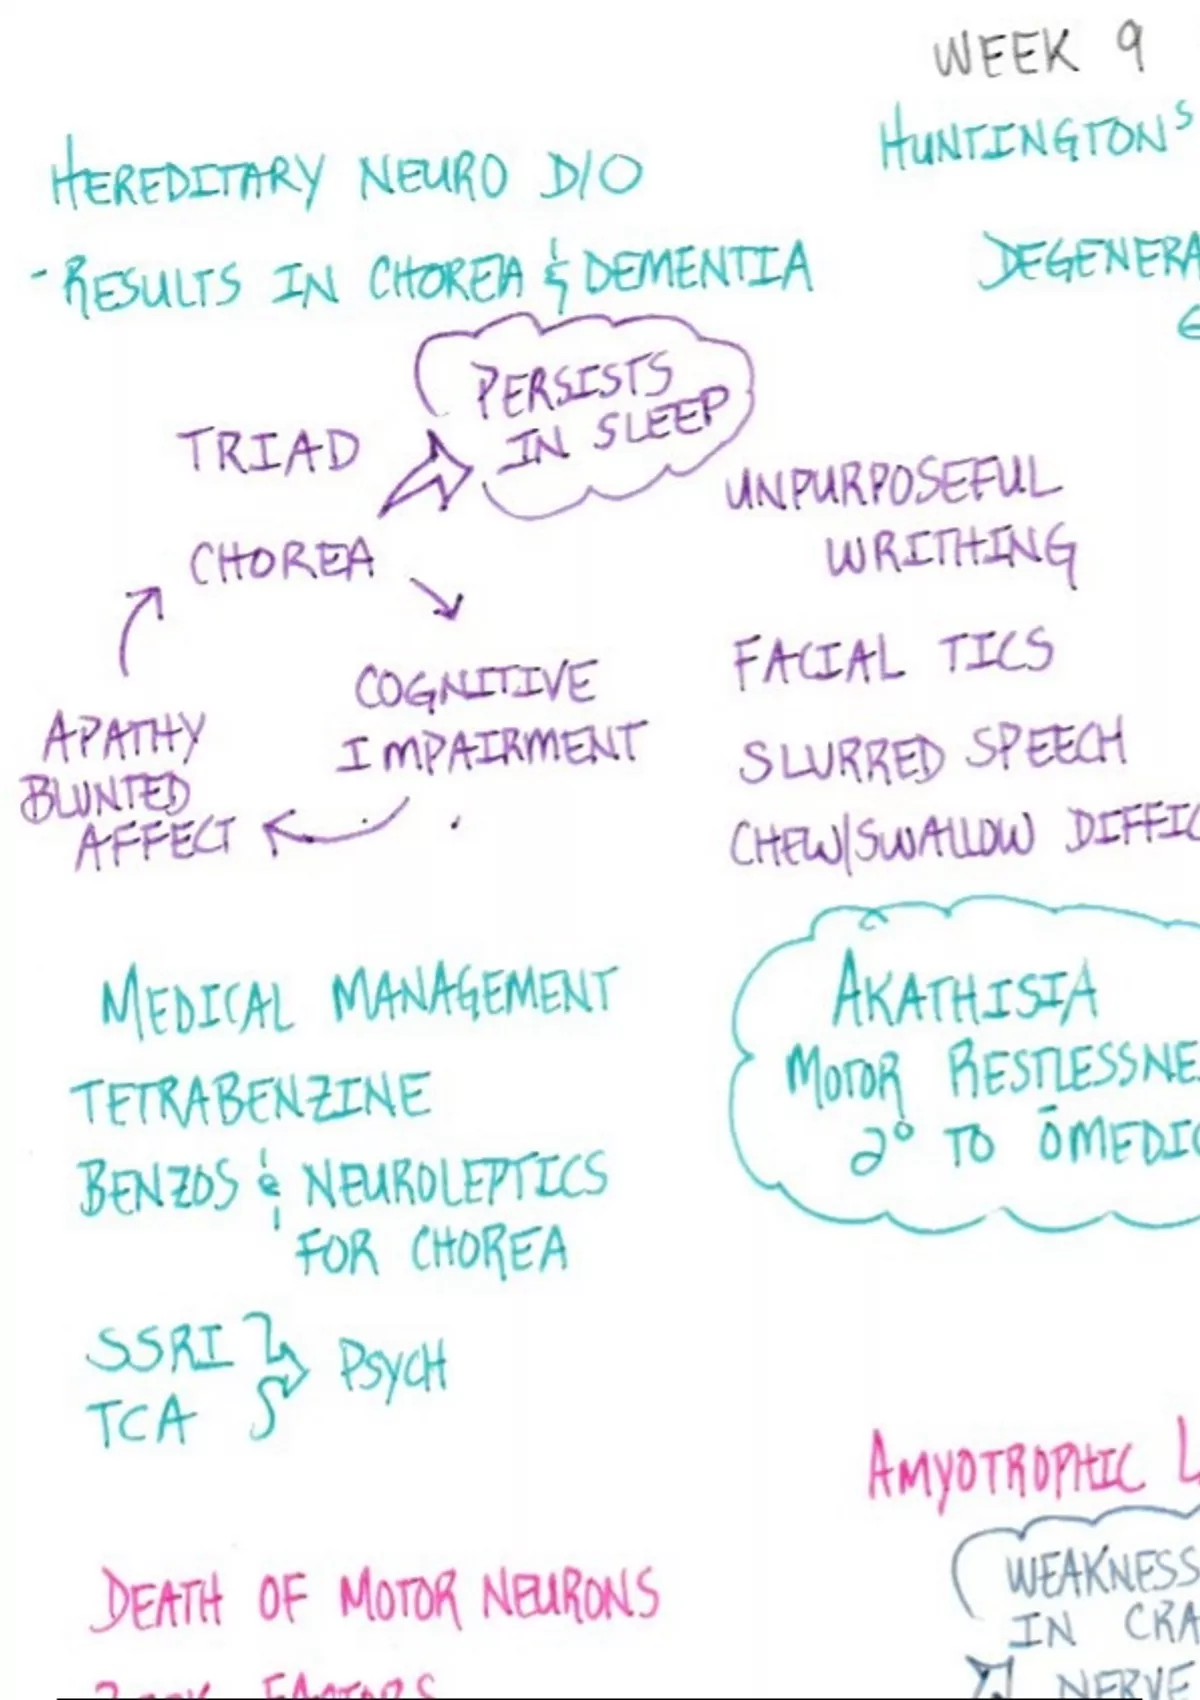 WEEK 9
HUNTINGTONS
HEREDITARY NEURO D/O
- RESULTS IN CHOREA & DEMENTIA
DEGENERA
TRIAD
PERSISTS
IN SLEEP
CHOREA
COGNITIVE
IMPAIRMENT
APATHY
BLUNTED
AFFECT
UNPURPOSEFUL
WRITHING
FACIAL TICS
SLURRED SPEECH
CHEW/SWALLOW DIFFIC
MEDICAL MANAGEMENT
TETRABENZINE
BENZOS & NEUROLEPTICS
FOR CHOREA
SSRI
TCA
PSYCH
AKATHISIA
MOTOR RESTLESSNE
2° TO ŌMEDIC
AMYOTROPHIC L
WEAKNESS
IN CRA
NERVE
DEATH OF MOTOR NEURONS
FACTORS